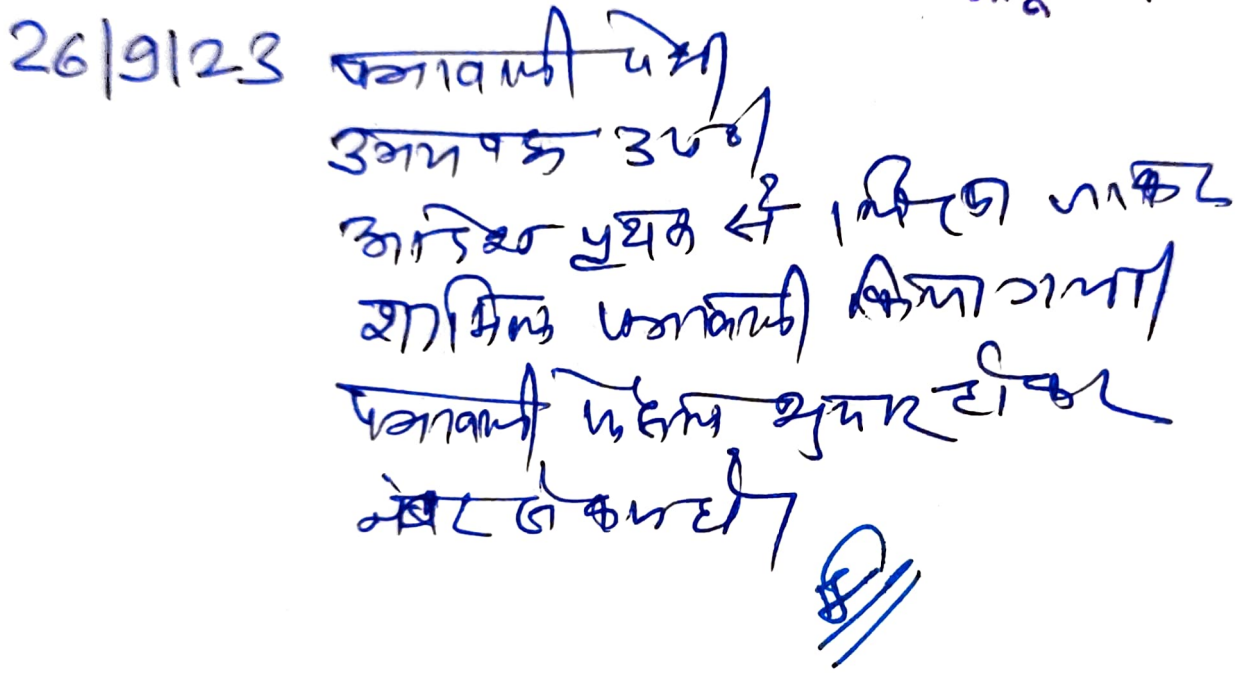 26/9/23 पत्रावली पेश।
उभयपक्ष उप०।
आदेश पृथक से लिखा जाकर
शामिल पत्रावली किया गया।
पत्रावली फैसल शुमार होकर
नंबर से कम हो।